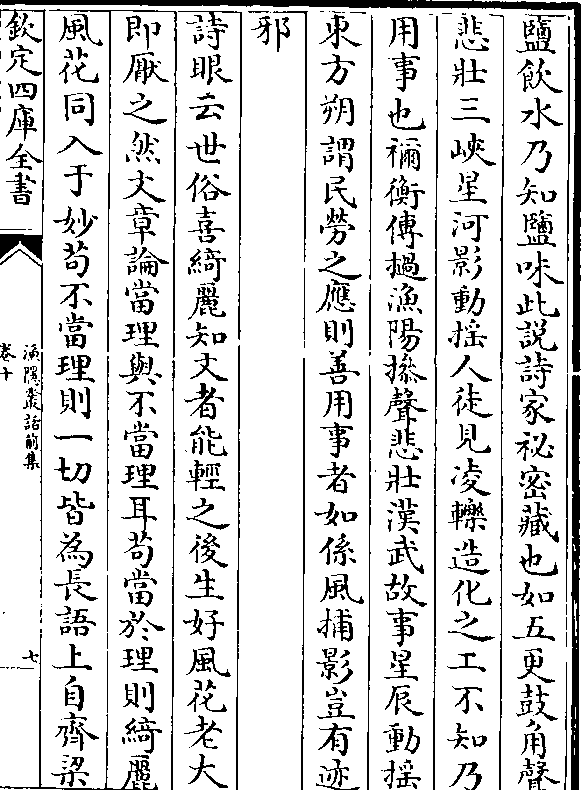 鹽飲水乃知鹽味此說詩家祕密藏也如五更鼓角聲
悲壯三峽星河影動揺人徒見凌轢造化之工不知乃
用事也禰衡傳撾漁陽摻聲悲壯漢武故事星辰動揺
東方朔謂民勞之應則善用事者如係風捕影豈有迹
邪
詩眼云世俗喜綺麗知文者能輕之後生好風花老大
即厭之然文章論當理與不當理耳苟當於理則綺麗
風花同入于妙苟不當理則一切皆為長語上自齊梁
欽定四庫全書
漁隱叢話前集
卷十
七